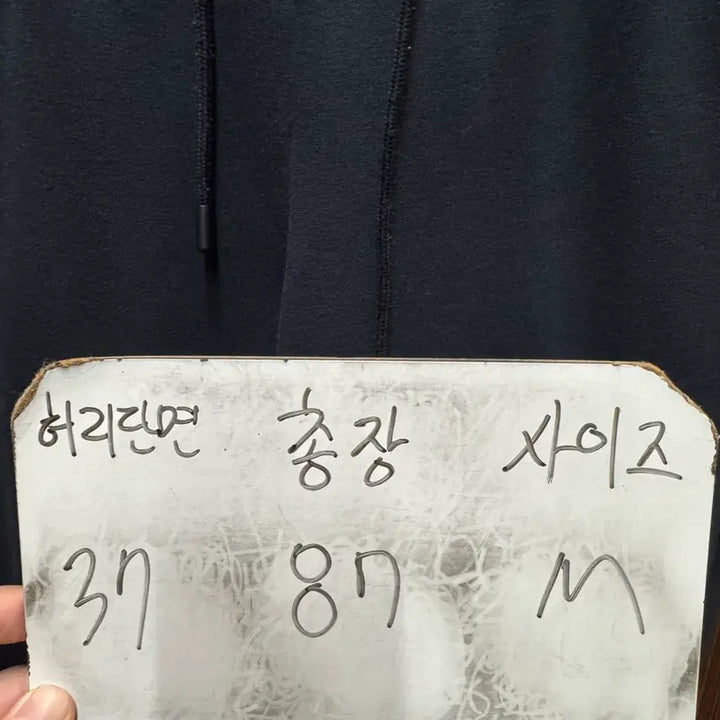 허리단면 총장 사이즈
37 87 M